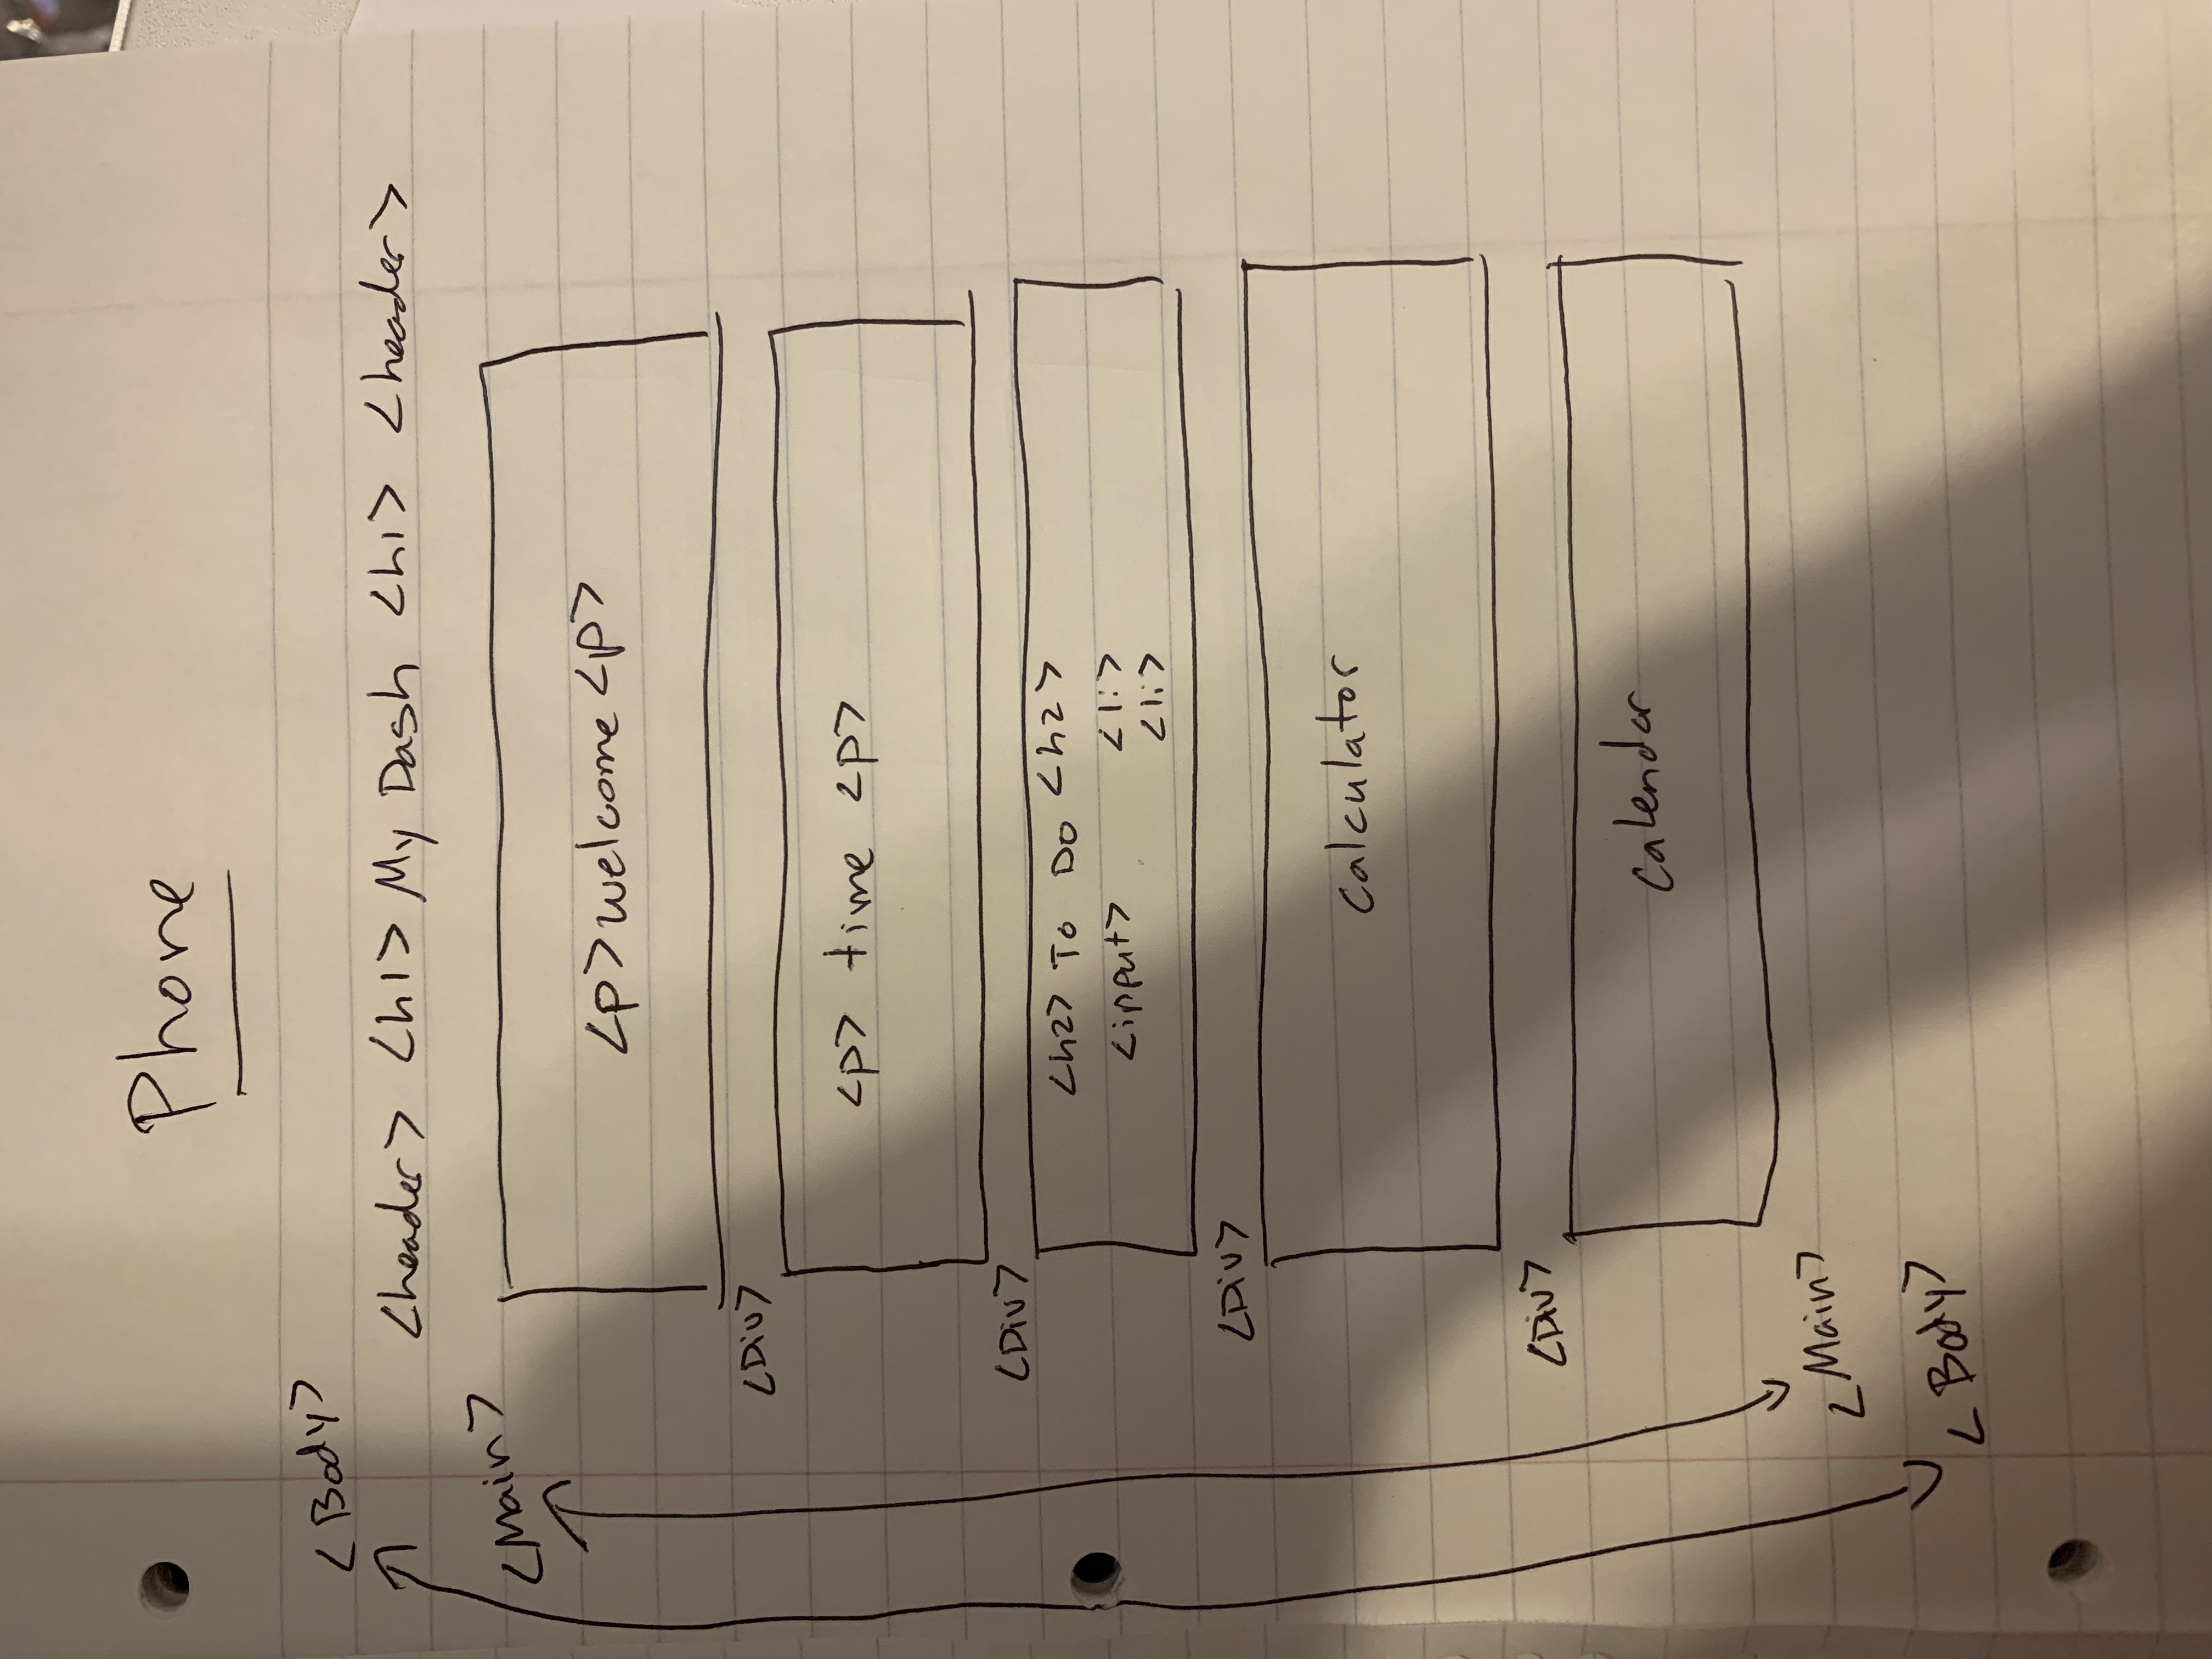 Phone
<Body>
<header> <h1> My Dash <h1> <header>
<Main>
<p> welcome <p>
<Div>
<p> time <p>
<Div>
<h2> To Do <h2>
<input> <li>
<li>
<Div>
Calculator
<Div>
Calendar
<Main>
<Body>